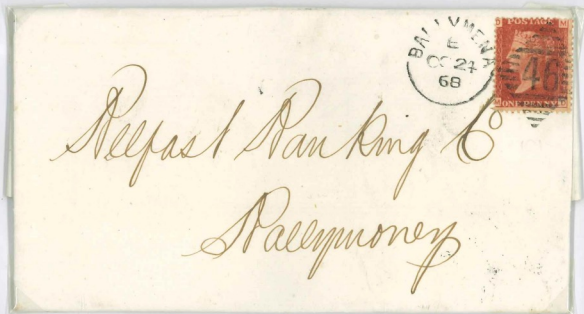 BALLYMENA
E
OC 24
68
POSTAGE
46
ONE PENNY
Belfast Banking Co
Ballymoney